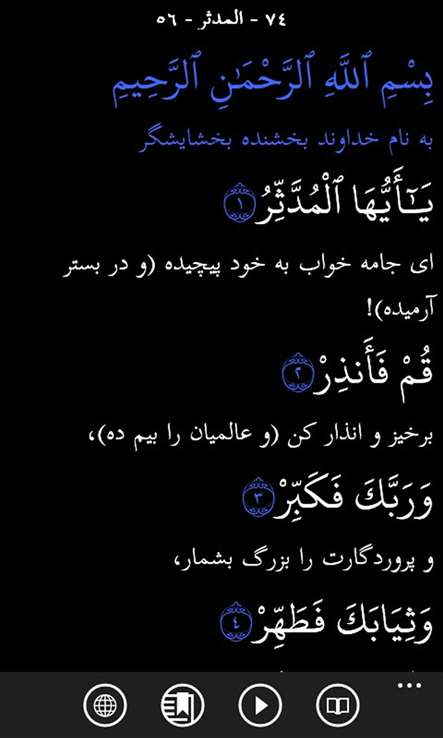 ٧٤ - المدثر - ٥٦
بِسْمِ ٱللَّهِ ٱلرَّحْمَـٰنِ ٱلرَّحِيمِ
به نام خداوند بخشنده بخشایشگر
يَـٰٓأَيُّهَا ٱلْمُدَّثِّرُ ١
ای جامه خواب به خود پیچیده (و در بستر
آرمیده)!
قُمْ فَأَنذِرْ ٢
برخیز و انذار کن (و عالمیان را بیم ده)،
وَرَبَّكَ فَكَبِّرْ ٣
و پروردگارت را بزرگ بشمار،
وَثِيَابَكَ فَطَهِّرْ ٤